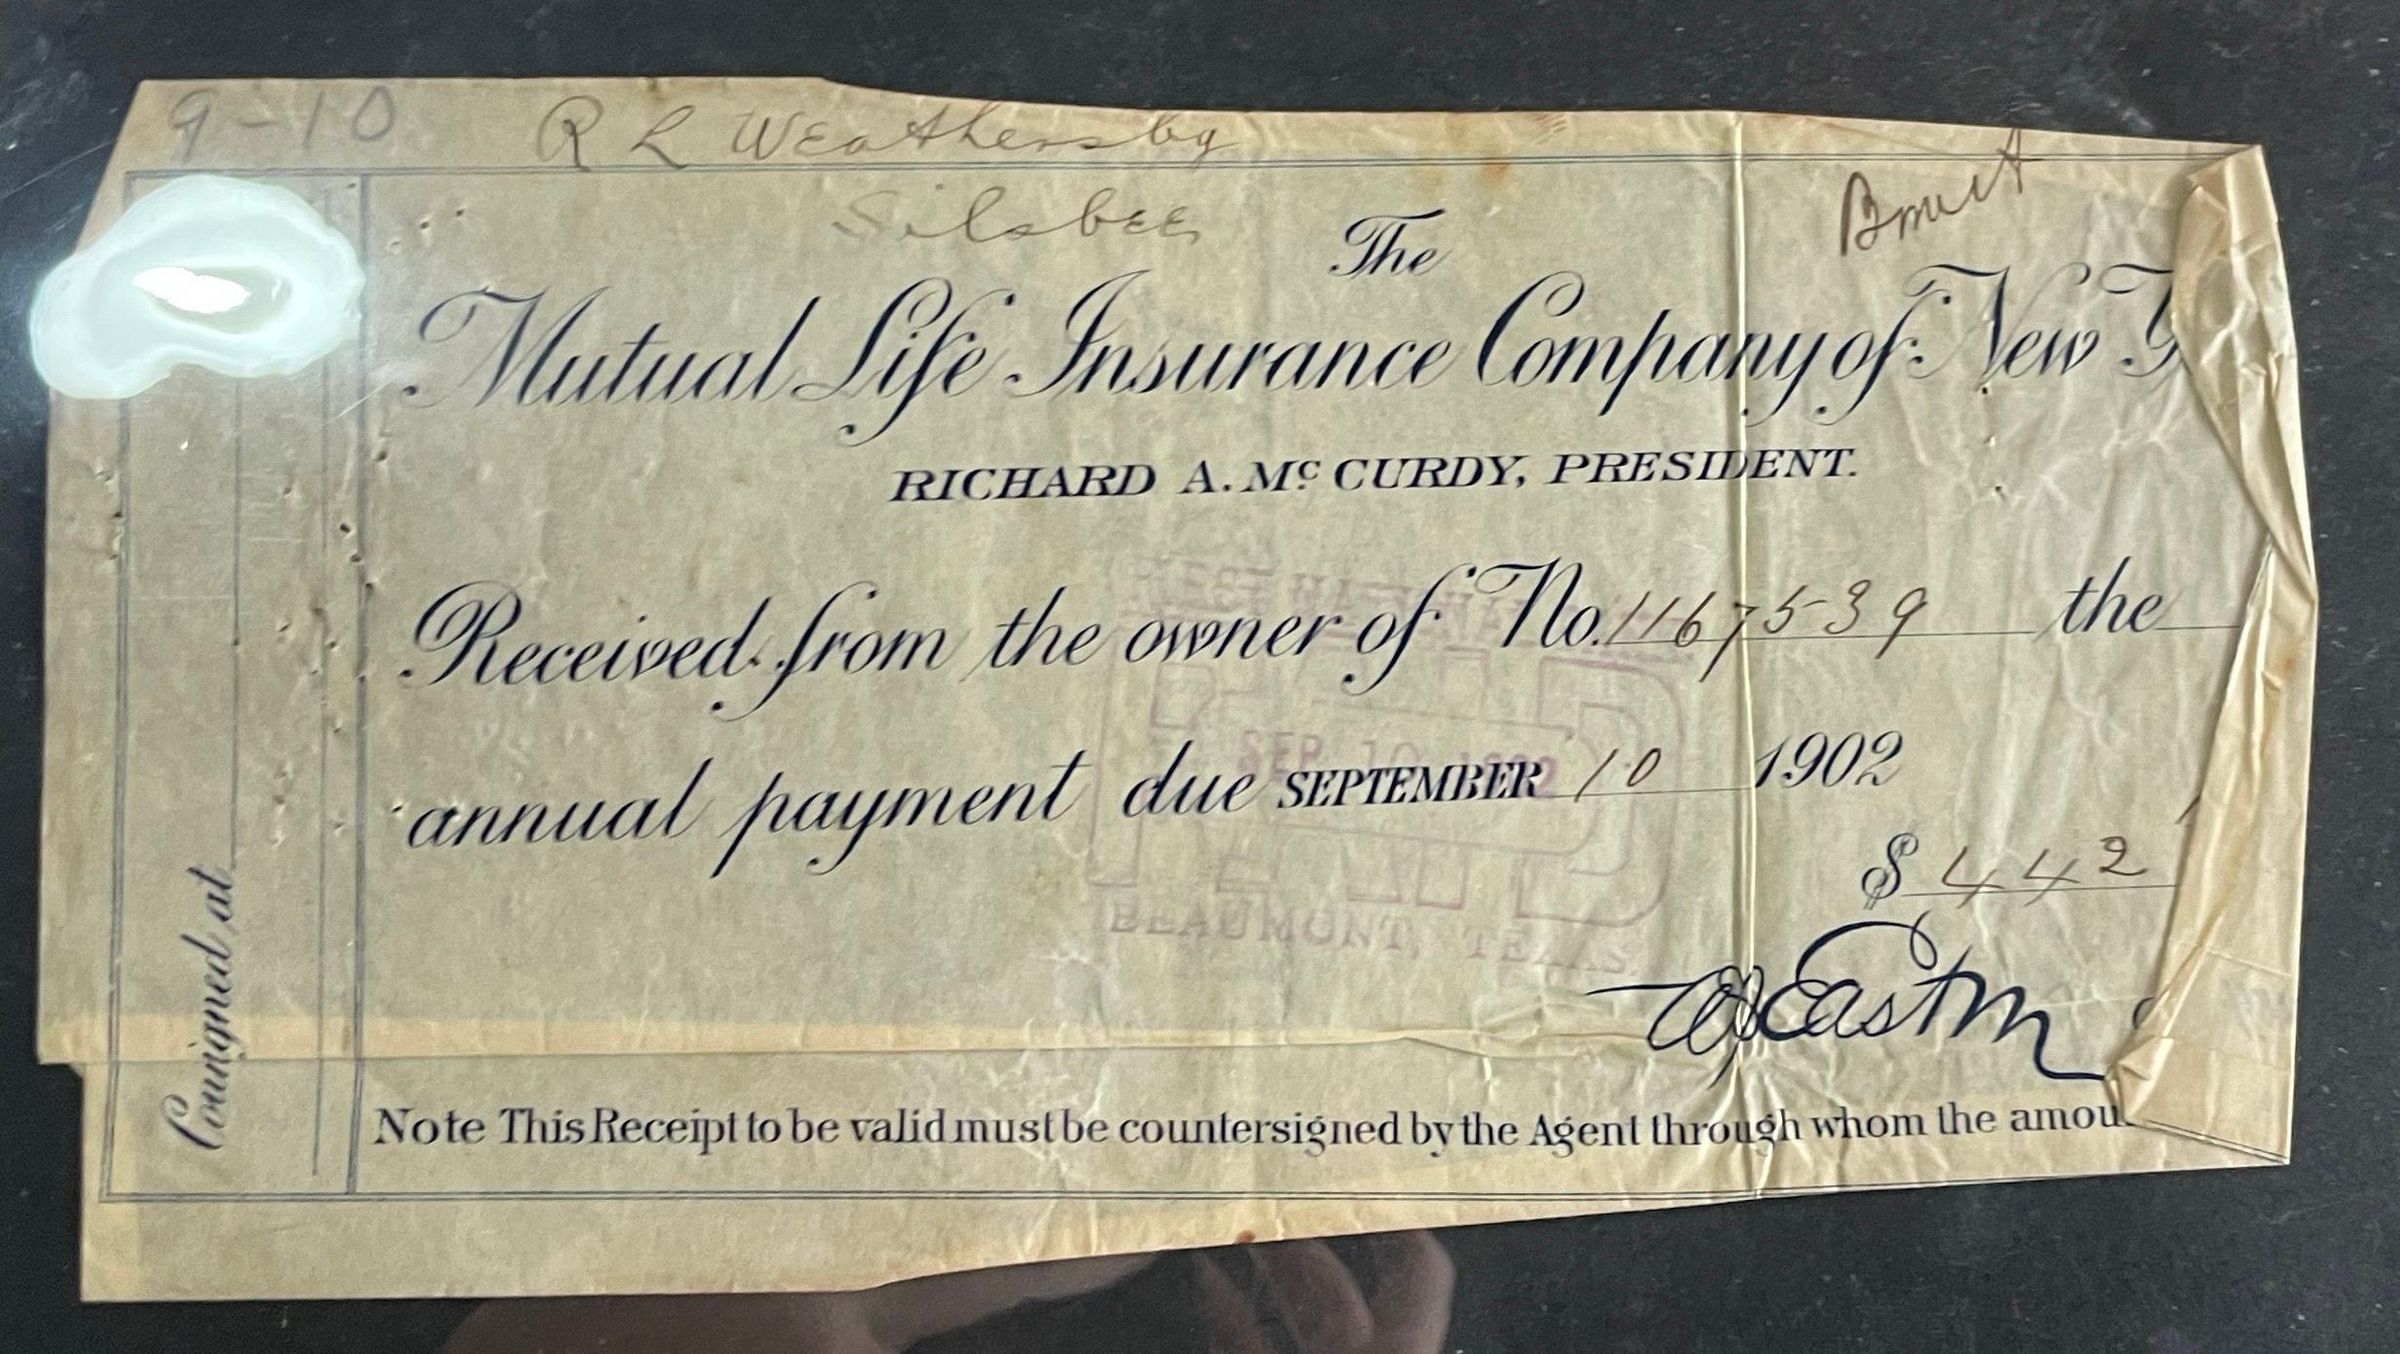 9-10 R L Weathersby
Silsbee
Bmu't
The
Mutual Life Insurance Company of New Y
RICHARD A. Mc CURDY, PRESIDENT.
Received from the owner of No. 1167539 the
annual payment due SEPTEMBER 10 1902
SEP 10
$ 442
BEAUMONT, TEXAS.
Counigned at
Note This Receipt to be valid must be countersigned by the Agent through whom the amou